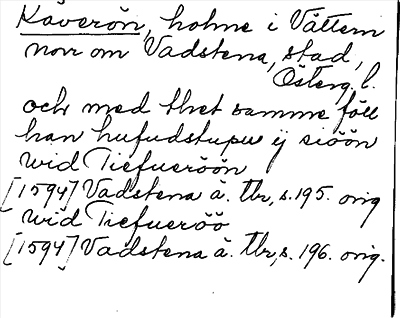 Kåverön, holme i Vättern
norr om Vadstena, stad,
Österg. l.
och med thet samme föll
han hufudstupu ij siöön
wid Tiefueröön
[1594] Vadstena ä. Tbr, s. 195. orig
wid Tiefueröö
[1594] Vadstena ä. Tbr, s. 196. orig.